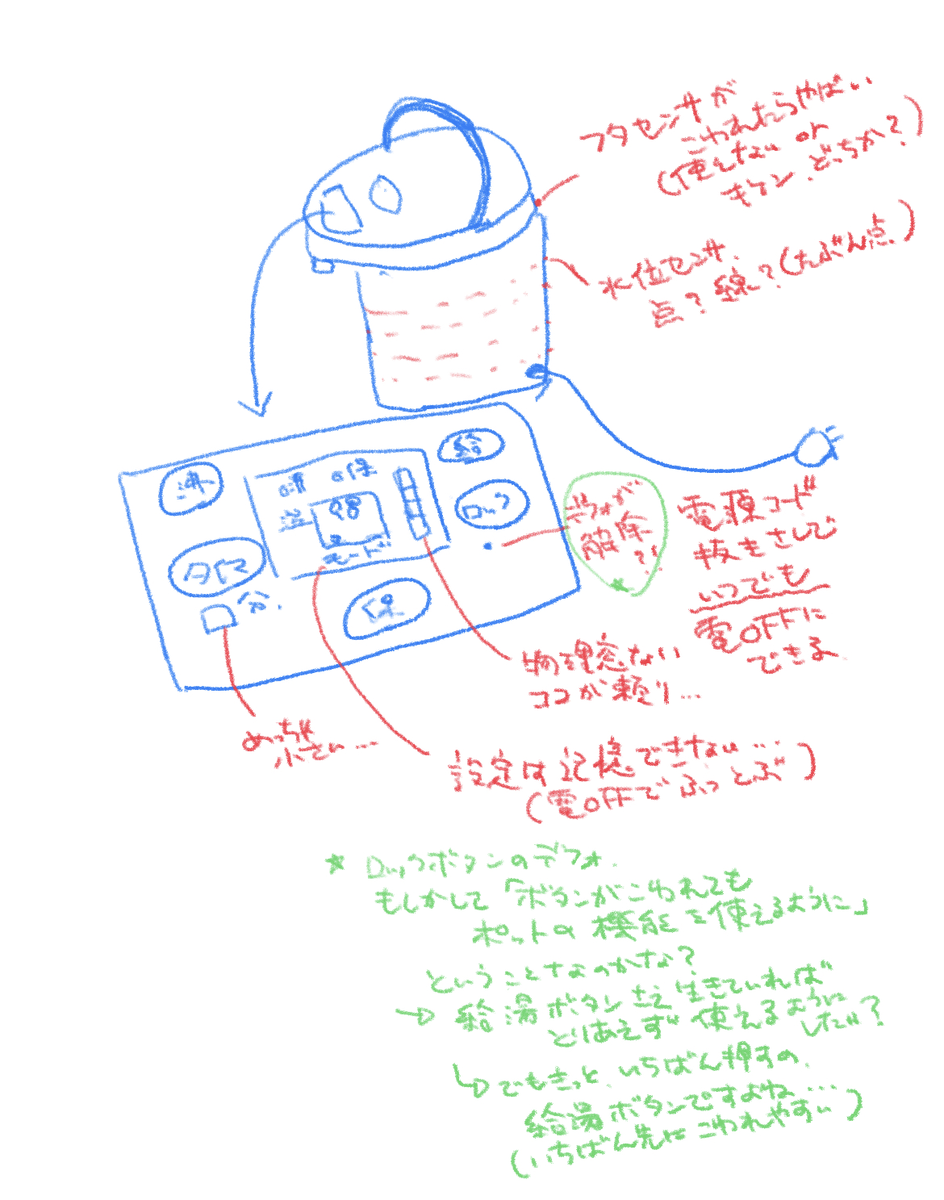 フタセンサが
こわれたらやばい
(使えない or
キケン、どっちか?)
水位センサ、
点?線?(たぶん点)
沸
給
保
温
98
モード
ロック
タイマ
分.
保
デフォが
解除
?!
★
電源コード
抜きさしで
いつでも
電OFFに
できる
物理窓ない
ココが頼り…
めっちゃ
小さい…
設定は記憶できない…
(電OFFでふっとぶ)
★ロックボタンのデフォ.
もしかして「ボタンがこわれても
ポットの機能を使えるように」
ということなのかな?
→給湯ボタンさえ生きていれば
とりあえず使えるように
したい?
↳でもきっと、いちばん押すの、
給湯ボタンですよね…
(いちばん先にこわれやすい)